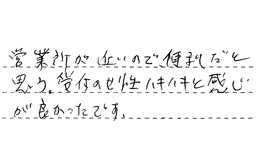 営業所が近いので便利だと
思う。受付の女性ハキハキと感じ
が良かったです。